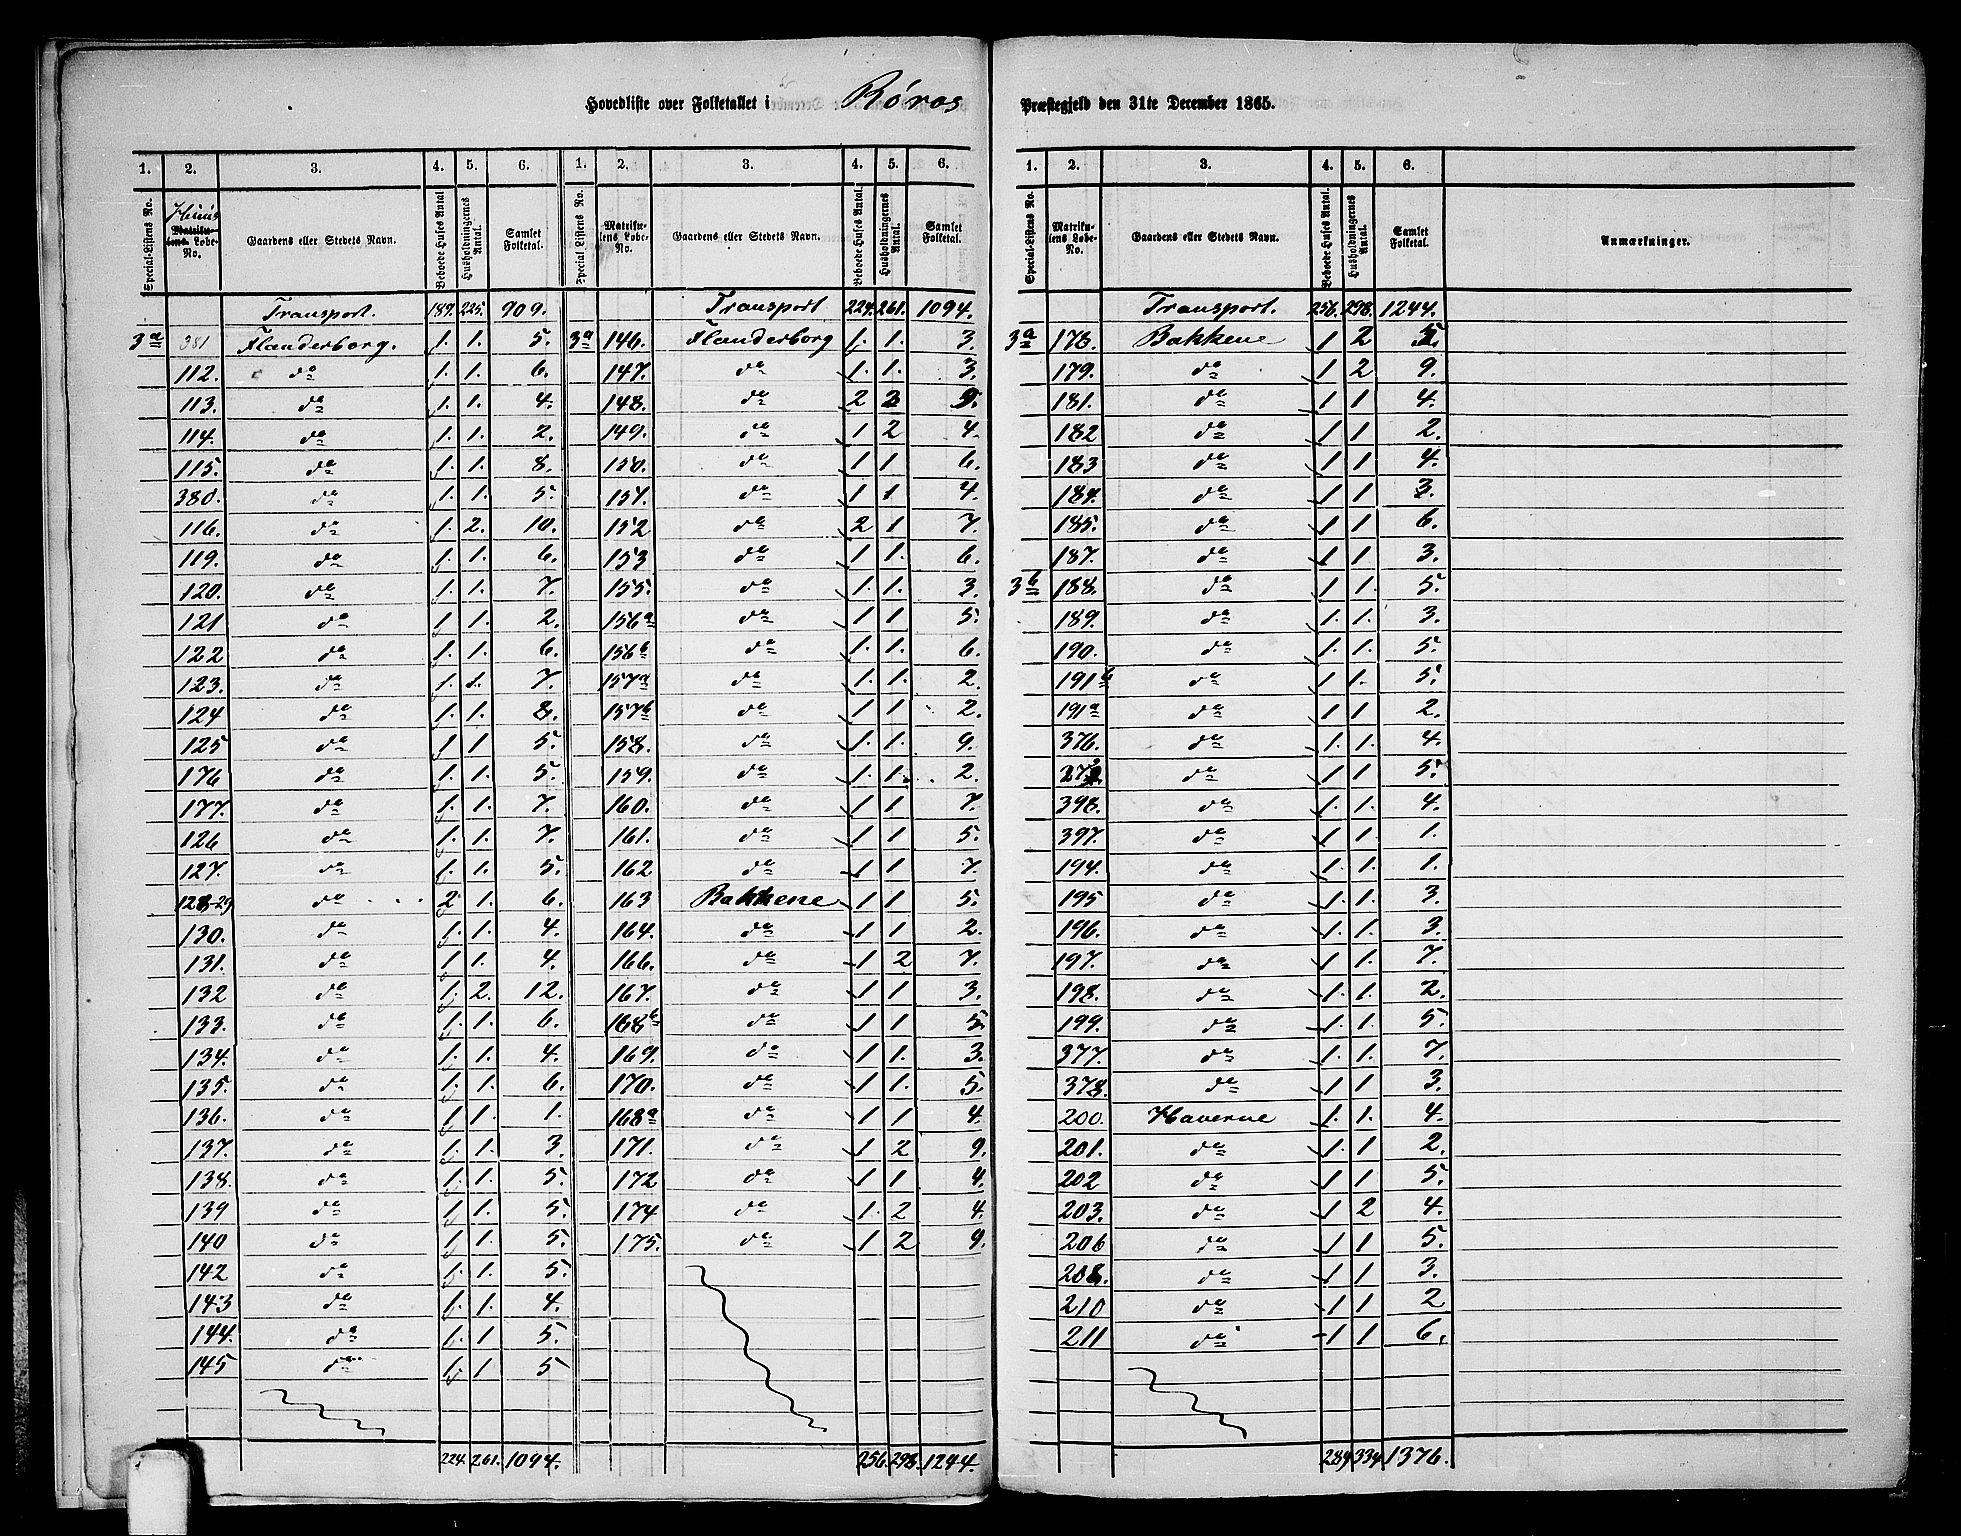 Hovedliste over Folketallet i Røros Præstegjeld den 31te December 1865.
1. 2. 3. 4. 5. 6. 1. 2. 3. 4. 5. 6.
Special-Listens No. Huus Matrikulens Løbe-No. Gaardens eller Stedets Navn. Beboede Huses Antal Husholdningernes Antal. Samlet Folketal. Special-Listens No. Matrikulens Løbe-No. Gaardens eller Stedets Navn. Beboede Huses Antal. Husholdningernes Antal. Samlet Folketal.
Transport. 189. 225. 909. Transport 224. 261. 1094.
3a 381 Flanderborg. 1. 1. 5. 3a 146. Flanderborg 1. 1. 3.
112. da 1. 1. 6. 147. da 1. 1. 3.
113. da 1. 1. 4. 148. da 2 3 9.
114. da 1. 1. 2. 149. da 1 2 4.
115. da 1. 1. 8. 150. da 1 1 6.
380. da 1. 1. 5. 151. da 1 1 4.
116. da 1. 2. 10. 152 da 2 1 7.
119. da 1. 1. 6. 153 da 1. 1. 6.
120. da 1. 1. 7. 155. da 1. 1. 3.
121 da 1. 1. 2. 156a da 1 1 5.
122 da 1. 1. 6. 156b da 1. 1. 6.
123. da 1. 1. 7. 157a da 1. 1. 2.
124 da 1. 1. 8. 157b da 1. 1. 2.
125 da 1 1 5. 158. da 1. 1. 9.
176 da 1. 1. 5. 159. da 1. 1. 2.
177. da 1. 1. 7. 160. da 1 1 7.
126 da 1. 1. 7. 161. da 1 1 5.
127. da 1. 1. 5. 162 da 1 1 7.
128-29 da 2. 1. 6. 163 Bakkene 1 1 5.
130. da 1. 1. 4. 164. da 1 1 2.
131. da 1 1. 4. 166. da 1 2 7.
132 da 1. 2. 12. 167. da 1 1 3.
133. da 1. 1. 6. 168b da 1 1 5.
134. da 1. 1. 4. 169. da 1 1. 3.
135. da 1. 1. 6. 170. da 1 1. 5.
136. da 1 1. 1. 168a da 1 1 4.
137. da 1. 1. 3. 171. da 1 2 9.
138. da 1. 1. 5. 172 da 1 1 4.
139 da 1. 1. 5. 174 da 1. 2 4.
140 da 1 1. 5. 175. da 1 2 9.
142 da 1. 1. 5.
143 da 1. 1. 4.
144. da 1. 1 5.
145 da 1. 1 5
224. 261. 1094. 256. 298. 1244.
1. 2. 3. 4. 5. 6.
Special-Listens No. Matrikulens Løbe-No. Gaardens eller Stedets Navn. Beboede Huses Antal. Husholdningernes Antal. Samlet Folketal. Anmærkninger.
Transport. 256. 298. 1244.
3a 178. Bakkene 1 2 5.
179. da 1 2 9.
181. da 1 1 4.
182 da 1 1 2.
183 da 1 1 4.
184. da 1 1 3.
185. da 1 1 6.
187. da 1 1 3.
3b 188. da 1 1. 5.
189. da 1. 1. 3.
190. da 1. 1. 5.
191b da 1 1. 5.
191a da 1 1 2.
376. da 1. 1. 4.
da 1 1 5.
398. da 1. 1. 4.
397. da 1. 1. 1.
194. da 1. 1. 1.
195 da 1 1. 3.
196. da 1. 1. 3.
197. da 1 1. 7.
198. da 1. 1. 2.
199. da 1. 1. 5.
377. da 1. 1. 7.
378. da 1 1 3.
200. Haverne 1. 1. 4.
201. da 1 1 2.
202 da 1 1 5.
203. da 1 2 4.
206 da 1 1 5.
208. da 1 1 3.
210 da 1 1 2
211 da 1 1 6.
289 334 1376.